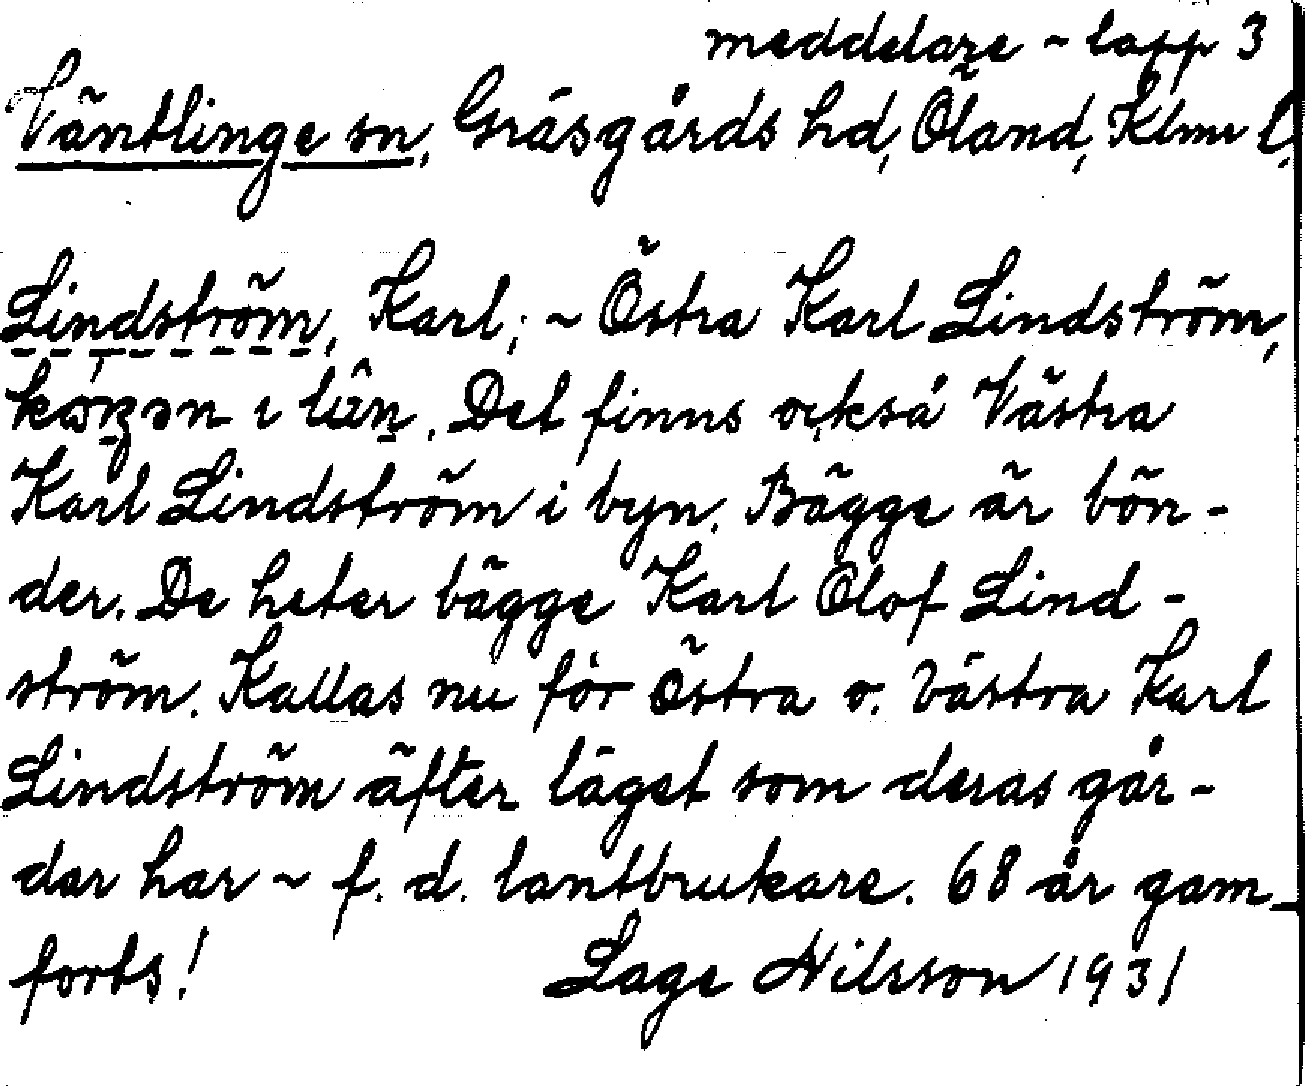 meddelare ~ lapp 3
Väntlinge sn, Gräsgårds hd, Öland, Klmr l,
Lindström, Karl; ~ Östra Karl Lindström,
i Det finns också Västra
Karl Lindström i byn. Bägge är bön-
der. De heter bägge Karl Olof Lind-
ström. Kallas nu för Östra o. Västra Karl
Lindström äfter läget som deras går-
dar har ~ f. d. lantbrukare. 68 år gam_
forts! Lage Nilsson 1931